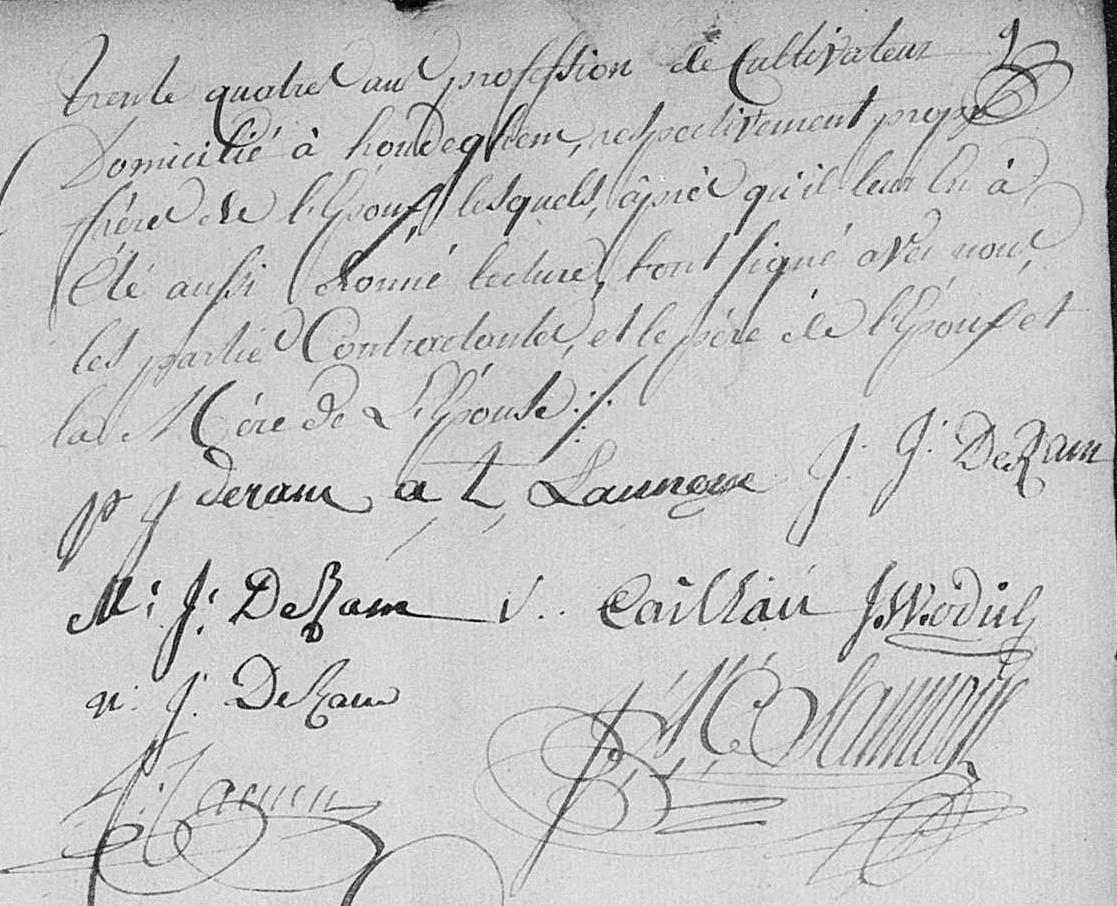 trente quatre ans profession de Cultivateur
Domicilié à hondeghem, respectivement propre
frère de l'Epoux, lesquels, âprès qu'il leur En à
Eté aussi Donné lecture, bont signé avec nous,
les parties Contractantes, et le père de l'Epoux et
la Mère de L'Epouse ./.
p j deram a t Launoye J. J. DeRam
M: J: DeRam v. Caillau J.W.odiif
n: j. DeRam